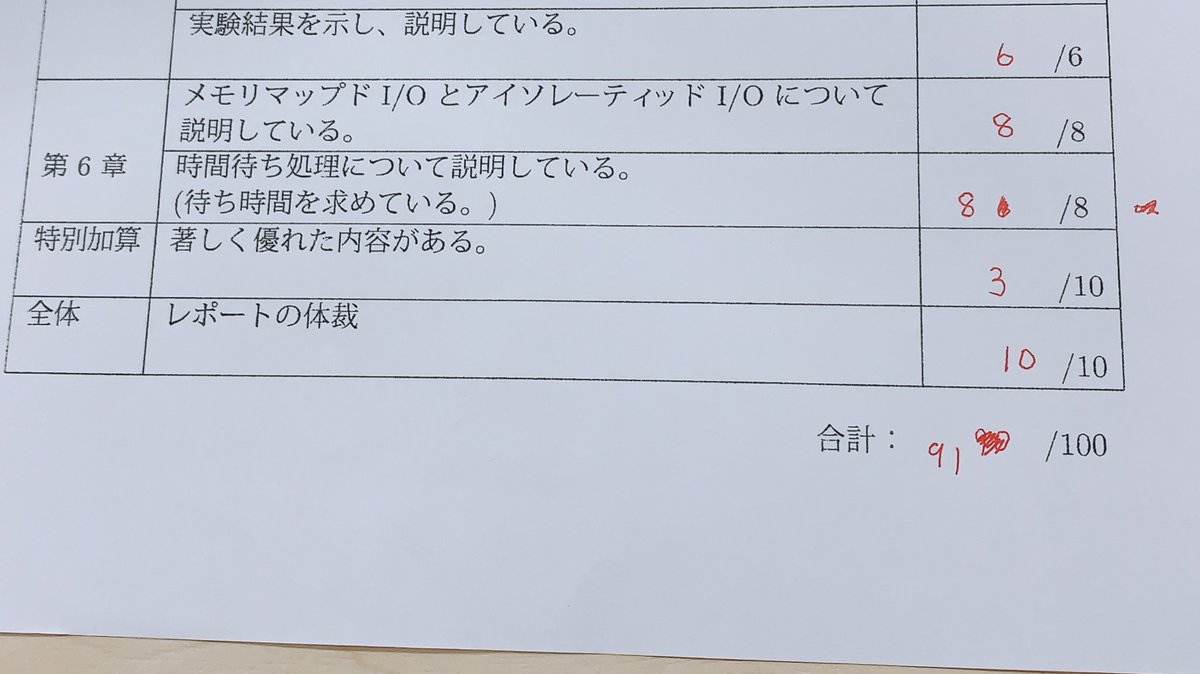 実験結果を示し、説明している。
6 /6
メモリマップド I/O とアイソレーティッド I/O について
説明している。
8 /8
第 6 章
時間待ち処理について説明している。
(待ち時間を求めている。)
8 /8
特別加算
著しく優れた内容がある。
3 /10
全体
レポートの体裁
10 /10
合計： 91 /100